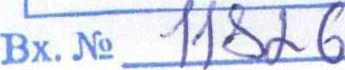 Вх. № 11826